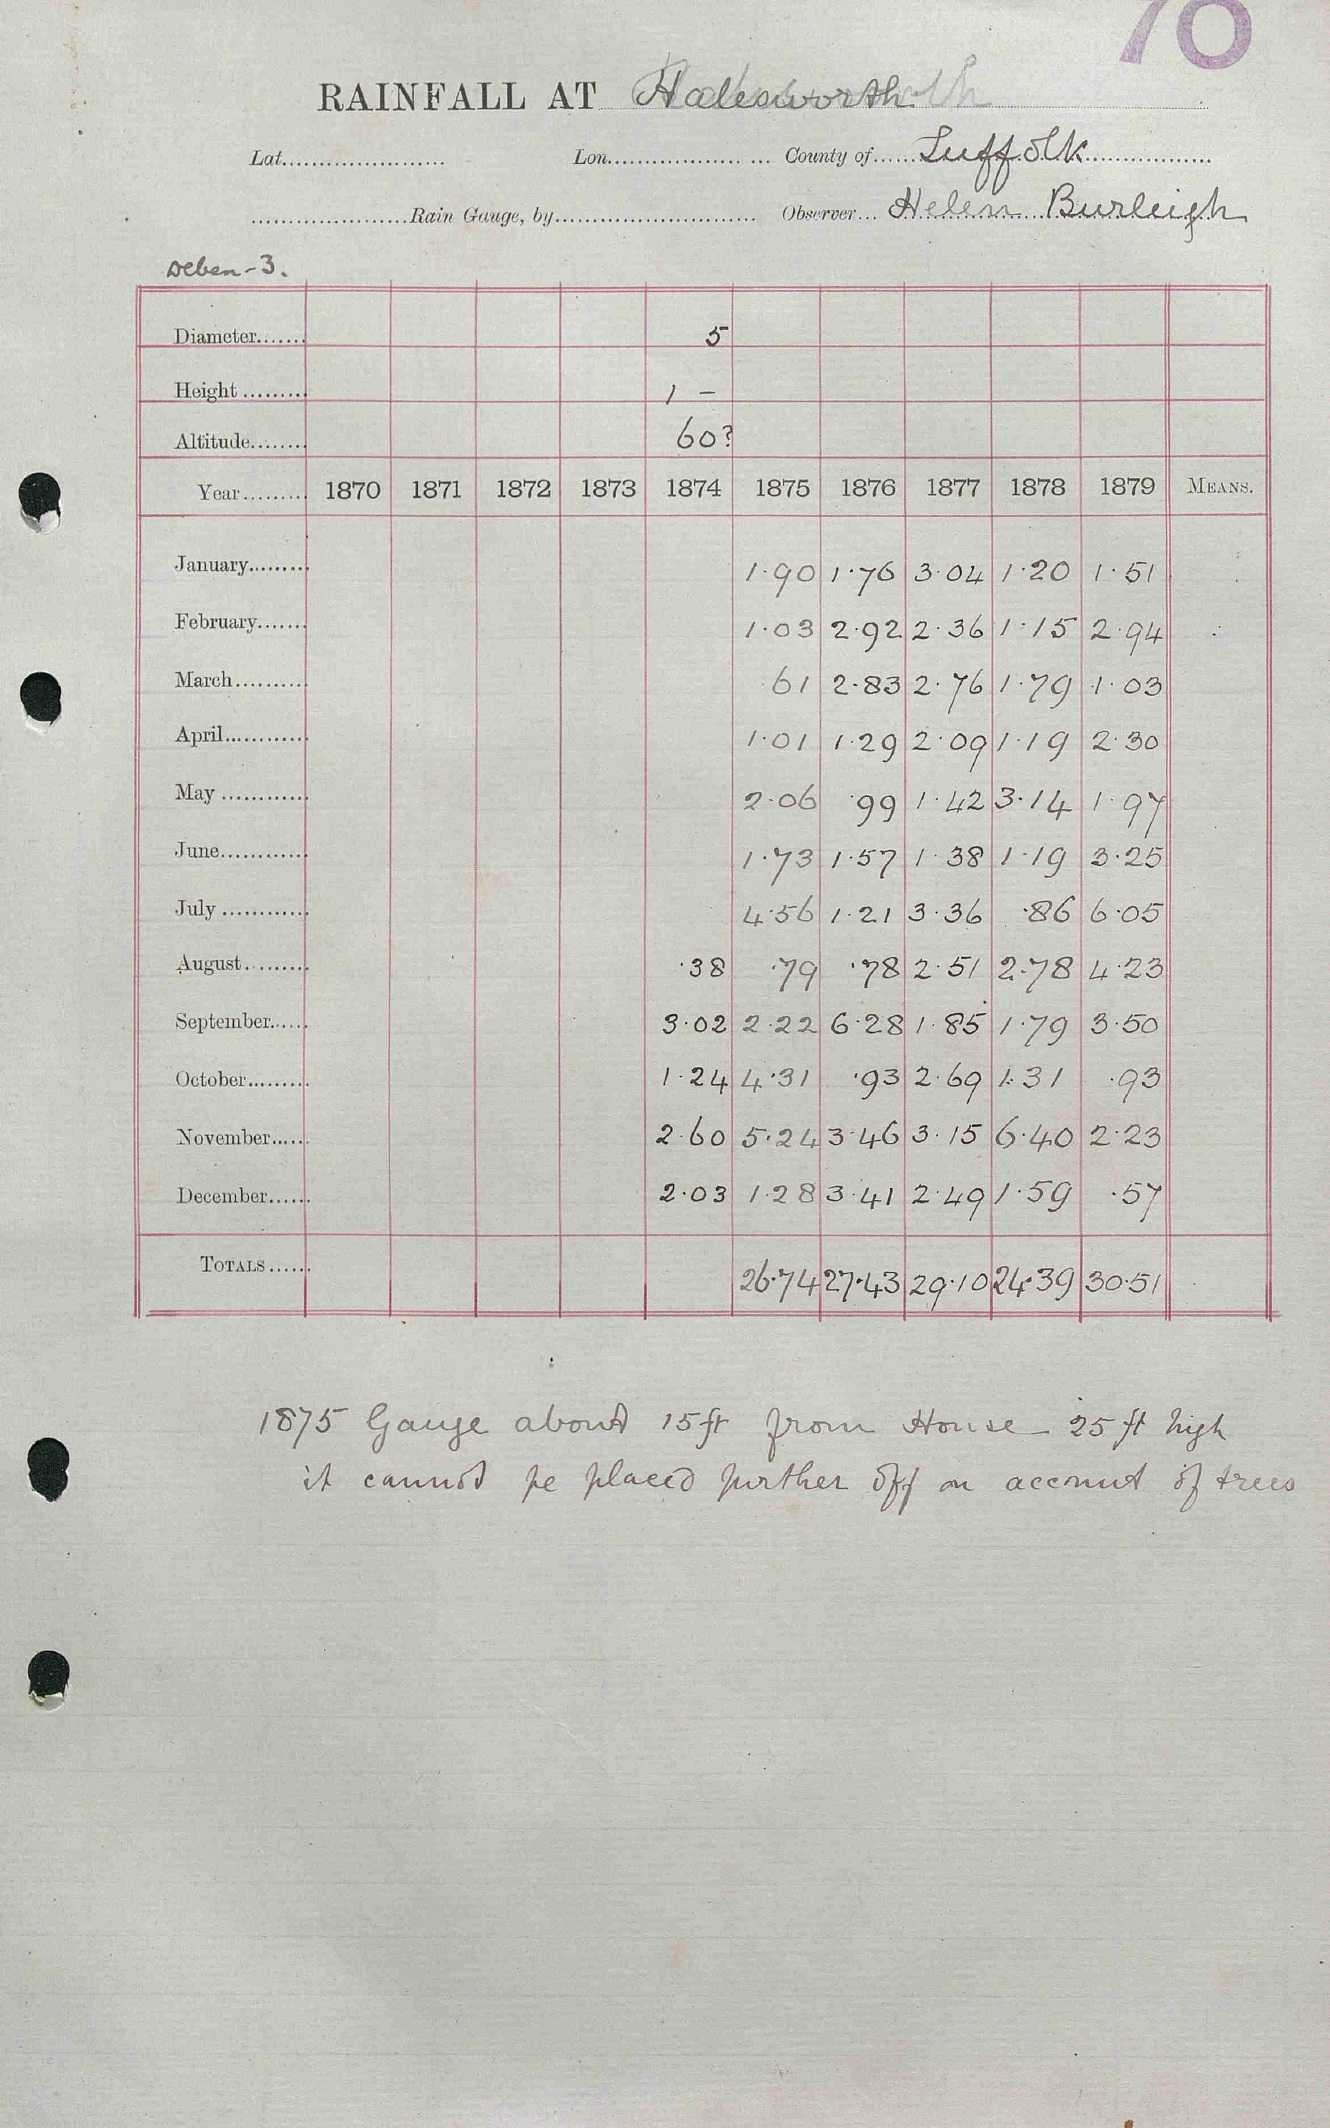 70
RAINFALL AT Halesworth
Lat...................... Lon...................... County of...... Suffolk
......................Rain Gauge, by........................... Observer... Helen Burleigh
Deben-3.
Diameter....... 5
Height ......... 1 -
Altitude........ 60?
Year......... 1870 1871 1872 1873 1874 1875 1876 1877 1878 1879 MEANS.
January......... 1.90 1.76 3.04 1.20 1.51
February....... 1.03 2.92 2.36 1.15 2.94
March.......... 61 2.83 2.76 1.79 1.03
April............ 1.01 1.29 2.09 1.19 2.30
May ............ 2.06 .99 1.42 3.14 1.97
June............ 1.73 1.57 1.38 1.19 3.25
July ............ 4.56 1.21 3.36 .86 6.05
August......... .38 .79 .78 2.51 2.78 4.23
September...... 3.02 2.22 6.28 1.85 1.79 3.50
October......... 1.24 4.31 .93 2.69 1.31 .93
November...... 2.60 5.24 3.46 3.15 6.40 2.23
December...... 2.03 1.28 3.41 2.49 1.59 .57
TOTALS...... 26.74 27.43 29.10 24.39 30.51
1875 Gauge about 15ft from House 25 ft high
it cannot be placed further off on account of trees